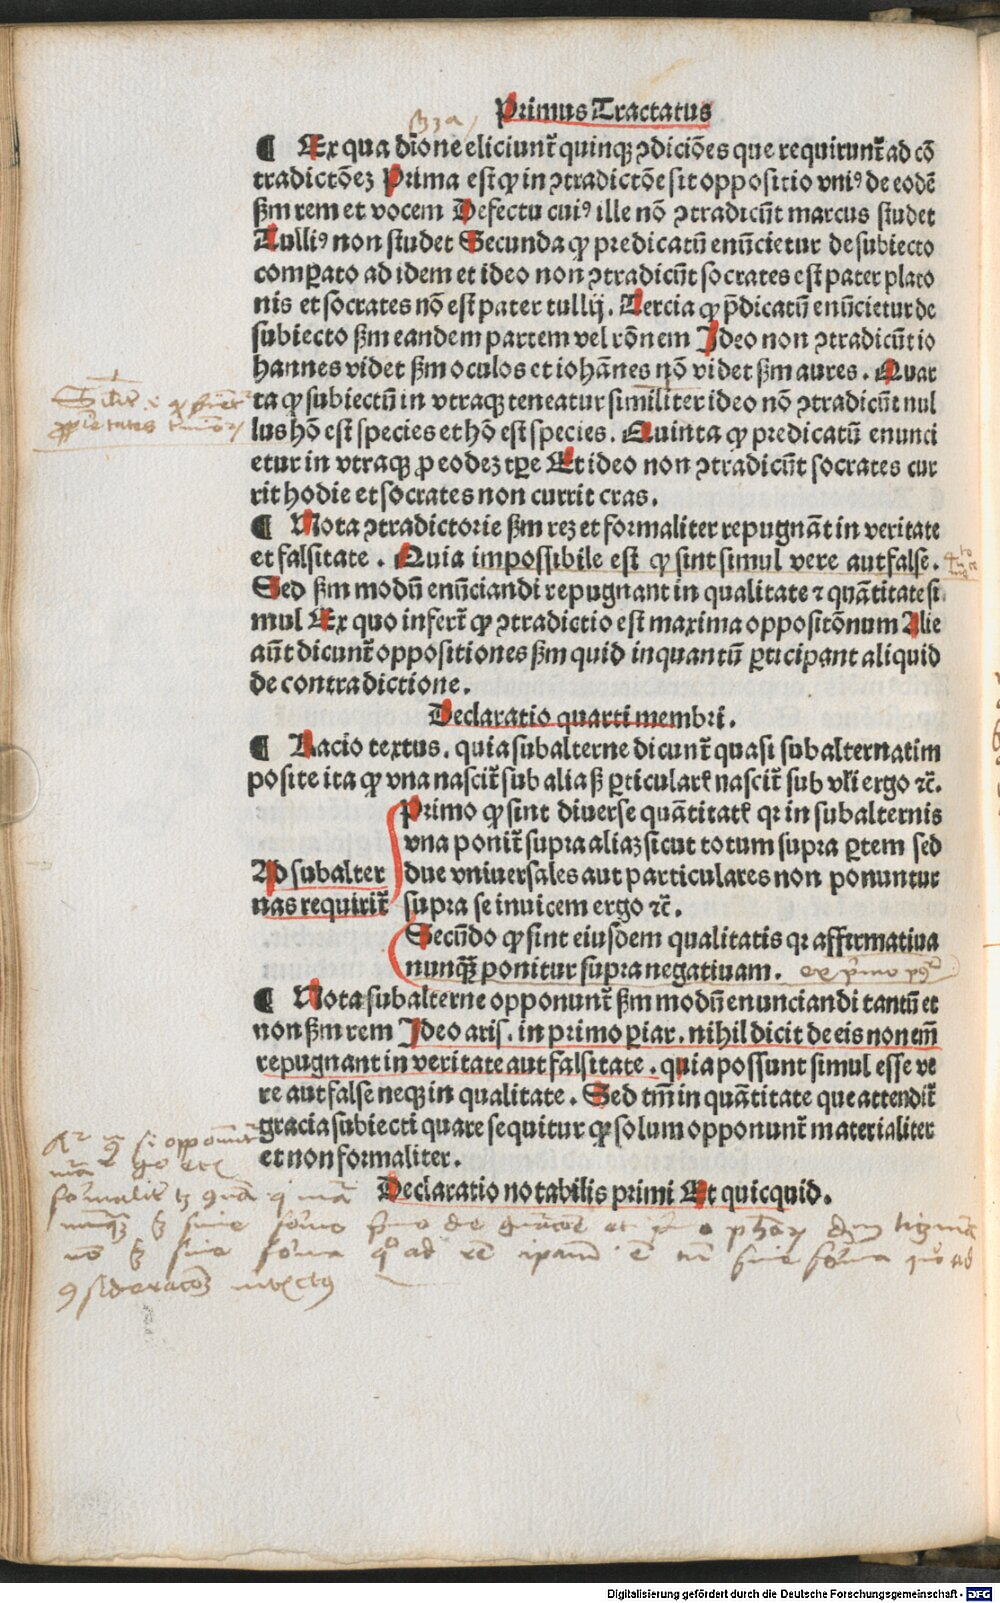 Primus Tractatus
¶ Ex qua diōne eliciunt᷑ quinqꝫ ↄdiciōes que requirunt᷑ ad cō
tradictōeꝫ Prima est ꝙ in ↄtradictōe sit oppositio vniꝰ de eodē
ẞm rem et vocem Defectu cuiꝰ ille nō ↄtradicūt marcus studet
Tulliꝰ non studet Secunda ꝙ predicatū enūcietur de subiecto
comꝑato ad idem et ideo non ↄtradicūt socrates est pater plato
nis et socrates nō est pater tullij. Tercia ꝙ p̄dicatū enūcietur de
subiecto ẞm eandem partem vel rōnem Ideo non ↄtradicūt io
hannes videt ẞm oculos et iohānes nō videt ẞm aures. Quar
ta ꝙ subiectū in vtraqꝫ teneatur similiter ideo nō ↄtradicūt nul
lus hō est species et hō est species. Quinta ꝙ predicatū enunci
etur in vtraqꝫ ꝓ eodeꝫ tꝑe Et ideo non ↄtradicūt socrates cur
rit hodie et socrates non currit cras.
¶ Nota ↄtradictorie ẞm reꝫ et formaliter repugnāt in veritate
et falsitate. Quia impossibile est ꝙ sint simul vere aut false.
Sed ẞm modū enūciandi repugnant in qualitate ⁊ quātitate si
mul Ex quo infert᷑ ꝙ ↄtradictio est maxima oppositōnum Alie
aūt dicunt᷑ oppositiones ẞm quid inquantū ꝑticipant aliquid
de contradictione.
Declaratio quarti membri.
¶ Racio textus. quia subalterne dicunt᷑ quasi subalternatim
posite ita ꝙ vna nascit᷑ sub alia sꝫ ꝑticularꝭ nascit᷑ sub vl̄i ergo ⁊c̄.
Ad subalter
nas requirit᷑
Primo ꝙ sint diuerse quātitatꝭ qꝛ in subalternis
vna ponit᷑ supra aliaꝫ sicut totum supra ꝑtem sed
due vniuersales aut particulares non ponuntur
supra se inuicem ergo ⁊c̄.
Secūdo ꝙ sint eiusdem qualitatis qꝛ affirmatiua
nunqꝫ ponitur supra negatiuam.
¶ Nota subalterne opponunt᷑ ẞm modū enunciandi tantū et
non ẞm rem Ideo aris. in primo ꝑiar. nihil dicit de eis non em̄
repugnant in veritate aut falsitate. quia possunt simul esse ve
re aut false neqꝫ in qualitate. Sed tm̄ in quātitate que attendit᷑
gracia subiecti quare sequitur ꝙ solum opponunt᷑ materialiter
et non formaliter.
Declaratio notabilis primi Et quicquid.
Digitalisierung gefördert durch die Deutsche Forschungsgemeinschaft - DFG